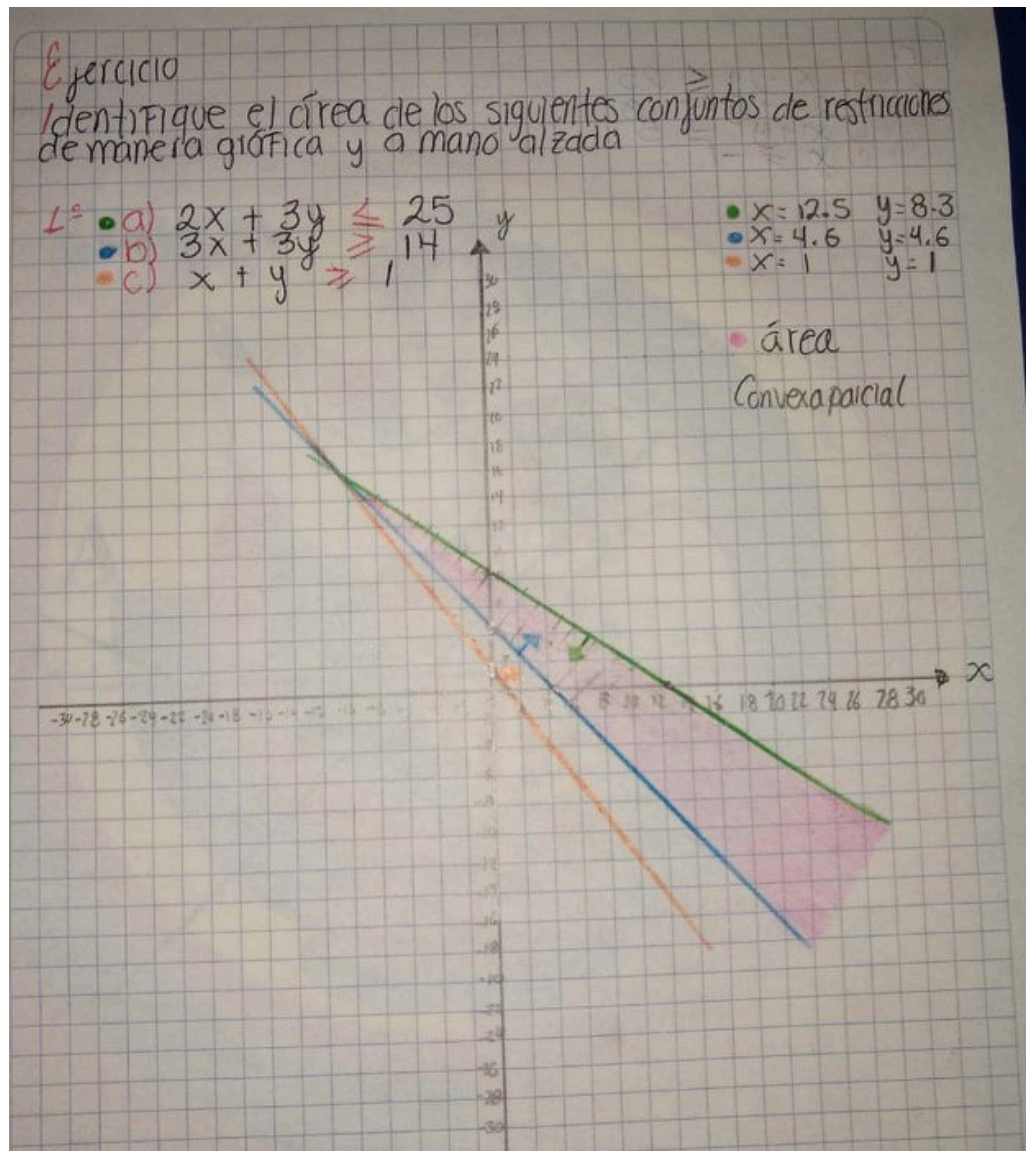 Ejercicio
≥
Identifique el área de los siguientes conjuntos de restricciones
de manera gráfica y a mano alzada
1º a) 2x + 3y ≤ 25
b) 3x + 3y ≥ 14
c) x + y ≥ 1
x = 12.5 y = 8.3
x = 4.6 y = 4.6
x = 1 y = 1
área
Convexa parcial
y
30
28
26
24
22
20
18
16
14
12
x
-30 -28 -26 -24 -22 -20 -18
8 10 12 16 18 20 22 24 26 28 30
-18
-20
-22
-24
-26
-28
-30